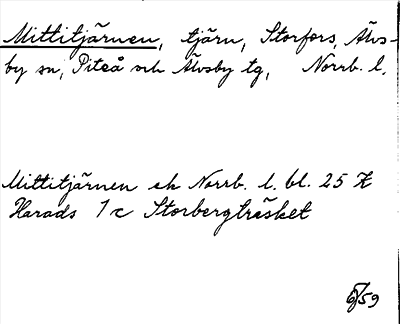 Mittitjärnen, tjärn, Storfors, Älvs-
by sn, Piteå och Älvsby tg, Norrb. l.
Mittitjärnen ek Norrb. l. bl. 25 K
Harads 1c Storbergträsket
6/59